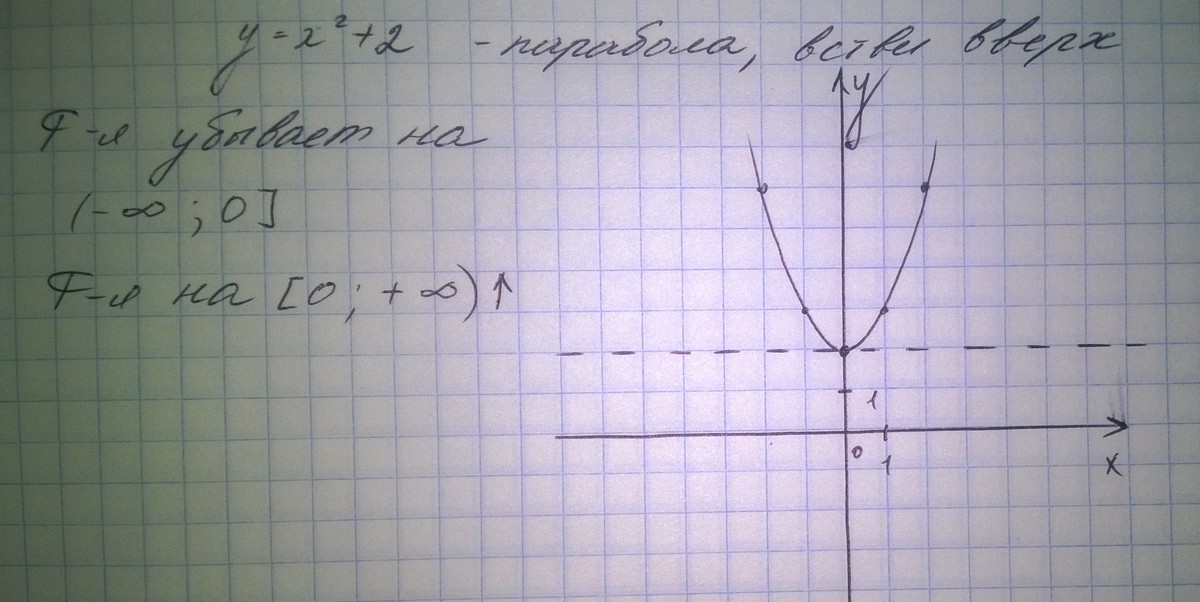 y = x² + 2 - парабола, ветви вверх
F-я убывает на
(-∞ ; 0]
F-я на [0 ; + ∞) ↑
y
1
0
1
x